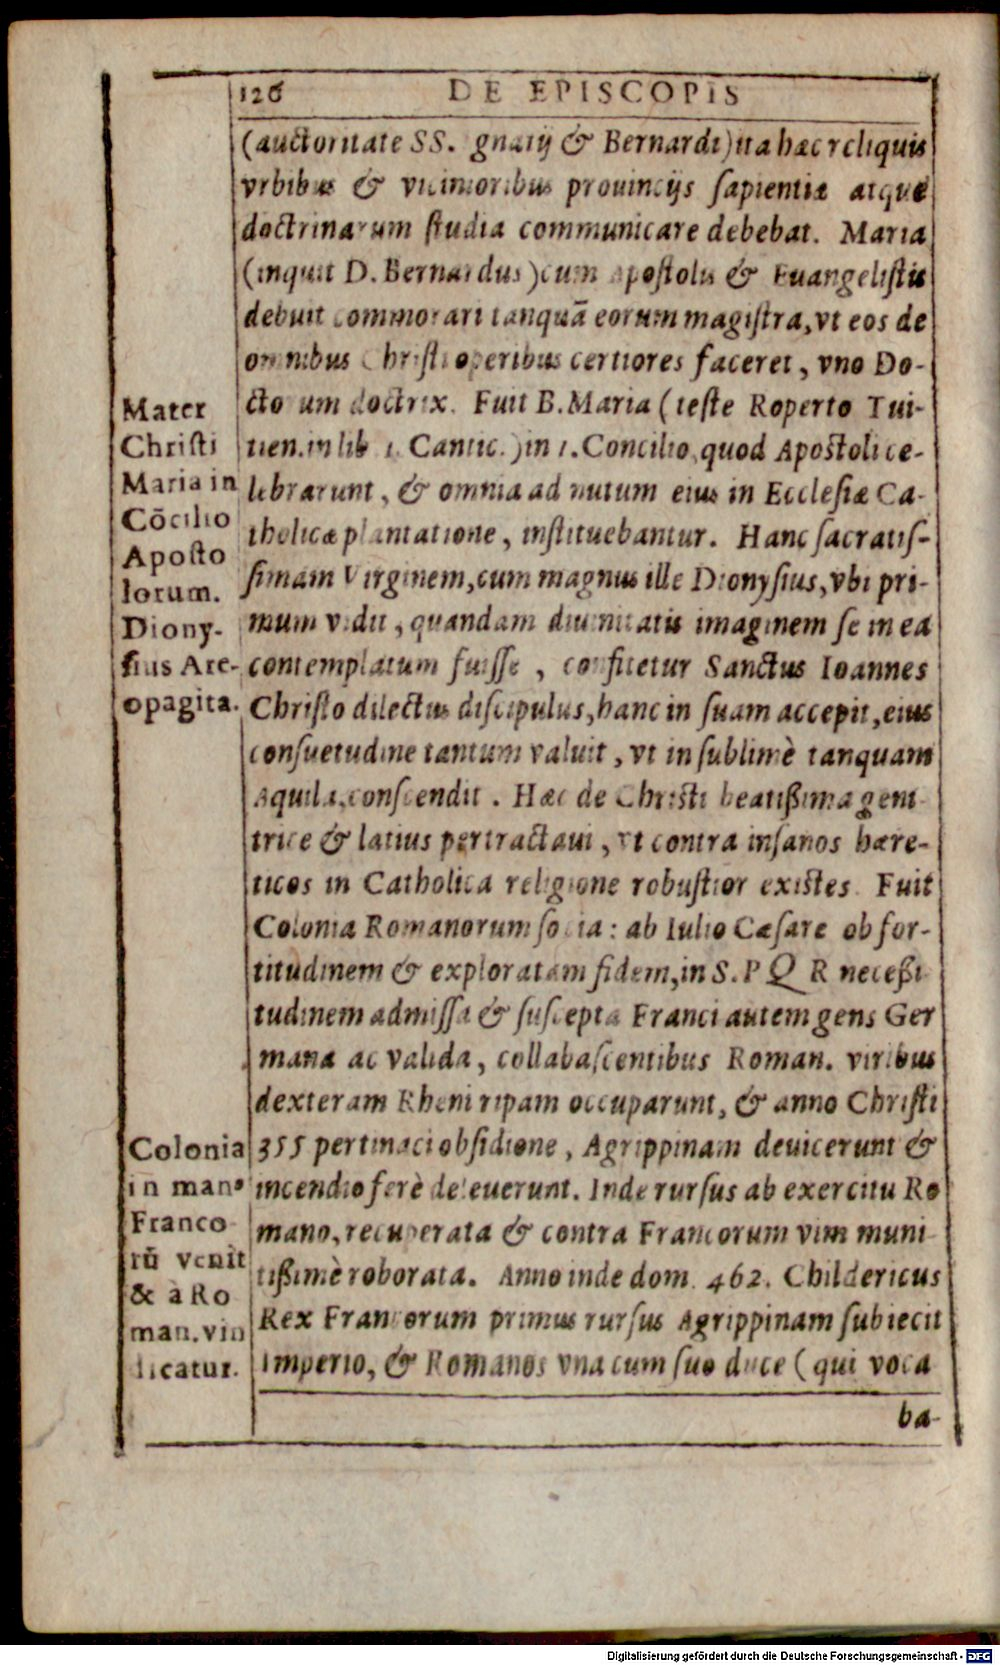 126 DE EPISCOPIS
(auctoritate SS. gnatij & Bernardi) ita hæc reliquis
vrbibus & vicinioribus prouincijs sapientiæ atque
doctrinarum studia communicare debebat. Maria
(inquit D. Bernardus) cum Apostolis & Euangelistis
debuit commorari tanquā eorum magistra, vt eos de
omnibus Christi operibus certiores faceret, vno Do-
ctorum doctrix. Fuit B. Maria (teste Roperto Tui-
tien. in lib 1. Cantic.) in 1. Concilio, quod Apostoli ce-
lebrarunt, & omnia ad nutum eius in Ecclesiæ Ca-
tholicæ plantatione, instituebantur. Hanc sacratis-
simam Virginem, cum magnus ille Dionysius, vbi pri-
mum vidit, quandam diuinitatis imaginem se in ea
contemplatum fuisse, confitetur Sanctus Ioannes
Christo dilectus discipulus, hanc in suam accepit, eius
consuetudine tantum valuit, vt in sublimè tanquam
Aquila, conscendit. Hæc de Christi beatißima geni
trice & latius pertractaui, vt contra insanos hære-
ticos in Catholica religione robustior existes. Fuit
Colonia Romanorum socia: ab Iulio Cæsare ob for-
titudinem & exploratam fidem, in S. P Q R neceßi
tudinem admissa & suscepta Franci autem gens Ger
mana ac valida, collabascentibus Roman. viribus
dexteram Rheni ripam occuparunt, & anno Christi
355 pertinaci obsidione, Agrippinam deuicerunt &
incendio ferè deleuerunt. Inde rursus ab exercitu Ro
mano, recuperata & contra Francorum vim muni
tißimè roborata. Anno inde dom. 462. Childericus
Rex Francorum primus rursus Agrippinam subiecit
Imperio, & Romanos vna cum suo duce (qui voca
ba-
Mater
Christi
Maria in
Cōcilio
Aposto
lorum.
Diony-
sius Are-
opagita.
Colonia
in manꝰ
Franco
rū venit
& à Ro
man. vin
dicatur.
Digitalisierung gefördert durch die Deutsche Forschungsgemeinschaft - DFG